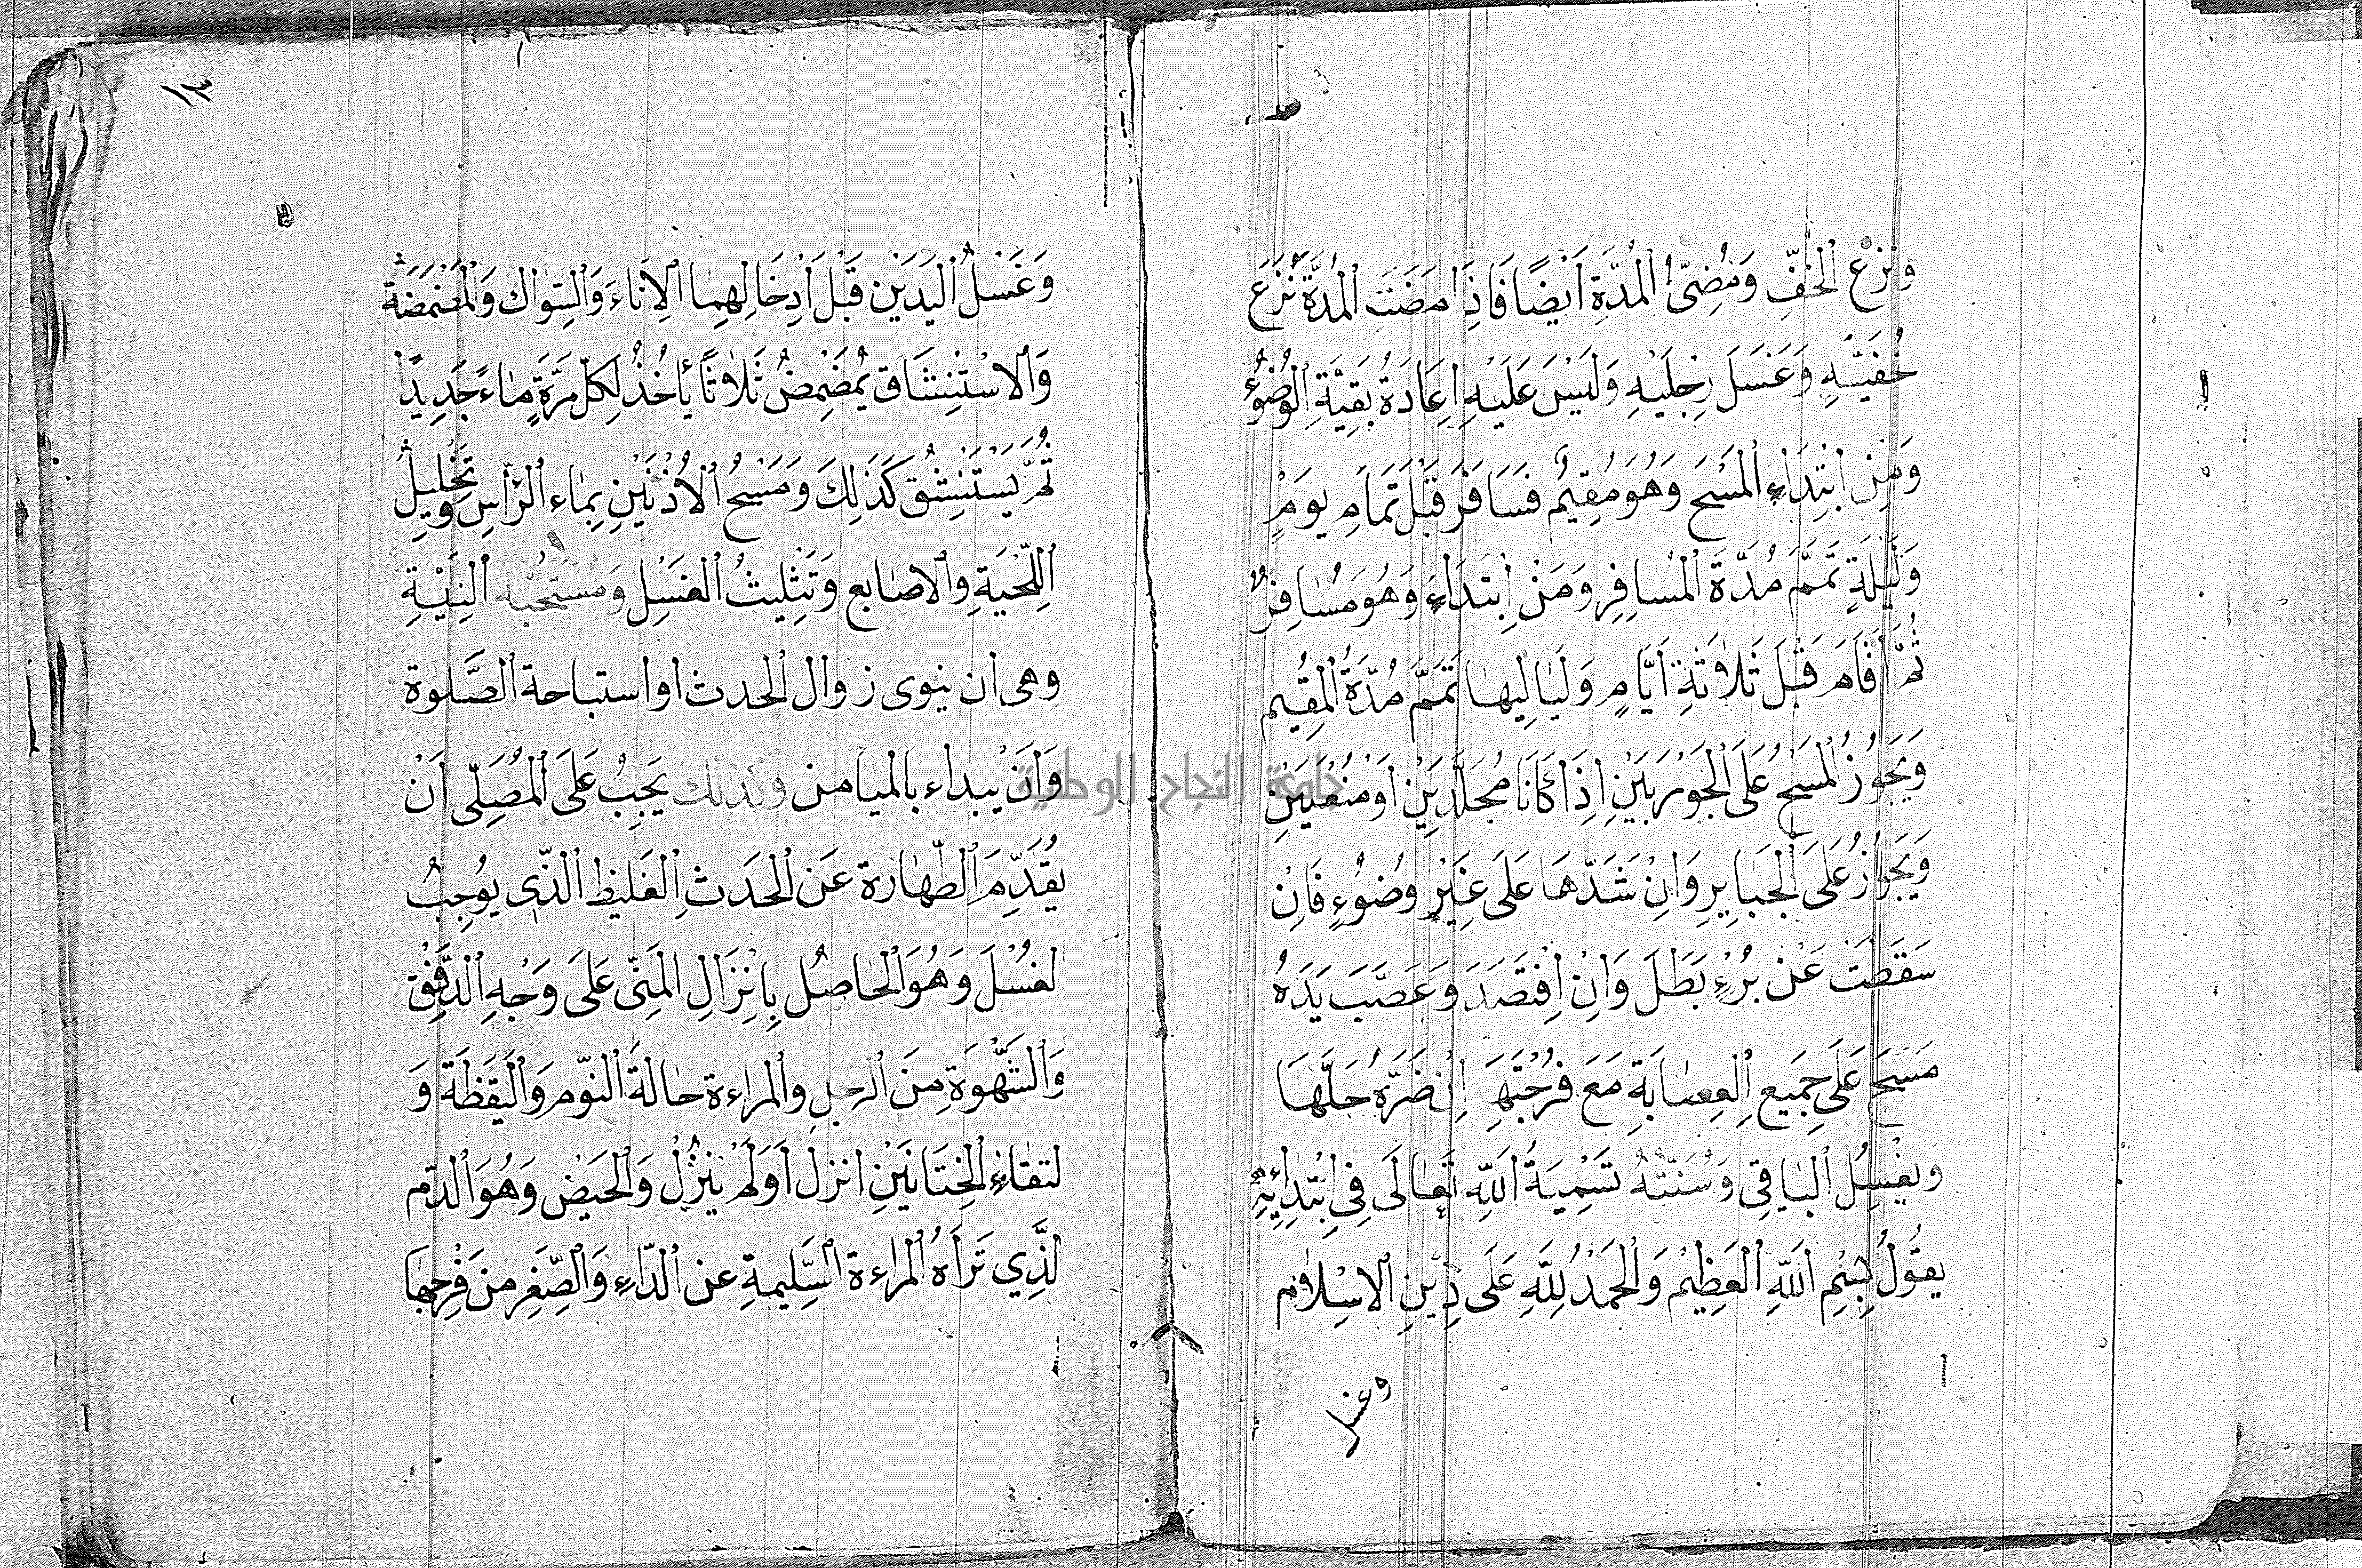 وَنَزْعُ الْخُفِّ وَمُضِىُّ الْمُدَّةِ اَيْضًا فَاِذَا مَضَتَ الْمُدَّةُ نَزَعَ
خُفَيَّهِ وَغَسَلَ رِجْلَيْهِ وَلَيْسَ عَلَيْهِ اِعَادَةُ بَقِيَّةِ الْوُضُوُءِ
وَمَنِ ابْتَدَاءِ الْمَسْحَ وَهُوَ مُقِيمٌ فَسَافَرَ قَبْلَ تَمَامِ يَومٍ
وَلَيْلَةٍ تَمَّمَ مُدَّةَ الْمُسَافِرِ وَمَنْ اِبْتَدَاءَ وَهُوَ مُسَافِرٌ
ثُمَّ اَقَامَ قَبْلَ ثَلاثَةِ اَيَّامٍ وَلَيَالِيهَا تَمَّمَ مُدَّةَ الْمُقِيمِ
وَيَجُوزُ الْمَسْحُ عَلَى الْجَوْرَبَيْنِ اِذَا كَانَا مُجَلَّدَيْنِ اَوْ مُنْعَلَيَنِ
وَيَجُوزُ عَلَى الْجَبَايِرِ وَاِنْ شَدَّهَا عَلَى غَيْرِ وُضُوُءٍ فَاِنْ
سَقَطَتْ عَنْ بُرْءٍ بَطَلَ وَاِنِ اِفْتَصَدَ وَعَصَّبَ يَدَهُ
مَسَحَ عَلَى جَمِيعِ الْعِصَابَةِ مَعَ فُرْجَتِهَا اِنْ ضَرَّهُ حَلَّهَا
وَيغْسِلُ الْبَاقِى وَسُنَّتُهُ تَسْمِيَةُ اَللّهِ تَعَالَى فِى اِبْتِدَائِهِ
يَقُولُ بِسْمِ اَللّهِ الْعَظِيمْ وَالْحَمْدُ لِلَّهِ عَلَى دِينِ الْاِسْلَامِ
وغسل
١٣
وَغَسْلُ الْيَدَيْنِ قَبْلَ اَدِخَالِهِمَا الْاِنَاءَ وَالسِّوَاك وَالْمَضْمَضَةُ
وَالْاسْتِنْشَاق يُمَضْمِضُ ثَلَاثًا يَأخُذُ لِكلِّ مَرَّةٍ مَاءً جَدِيدًا
ثُمَّ يَسْتَنْشِقُ كَذَلِكَ وَمَسْحُ الْاُذْنَيْنِ بِمَاء الرَّأسِ وَتَخْلِيلُ
اللِّحْيَةِ والاصَابع وَتَثِليثُ الْغَسْلِ وَمُسْتَحَبُّه النِيَّةِ
وهى ان ينوى زوال الحدث او استباحة الصَّلوة
وَاَنْ يبداء بالميامن وكذلك يَجِبُ عَلَى الْمُصَلِّى اَنْ
يُقَدِّمَ الطَّهَارة عَن الْحَدَثِ الْغَليظ الَّذِى يوُجِبُ
لغُسْلَ وَهُوَ الْحَاصُل بِاِنْزَالِ الْمَنِى عَلَى وَجْهِ الدَّفْقِ
وَالشَّهْوَةِ مِنَ الرجلِ والمراءة حَالةَ النّوم وَالْيَقَظَة وَ
لتقَاءِ الْخِتَانَيْنِ انزل اَوَ لَمْ يَنْزُلْ وَالْحَيْض وَهُوَ الدّم
لَّذِي تَرَاهُ الْمَراءة السَّلِيمةِ عن الدّاءِ وَالصِّغَرِ من فَرْجِهَا
جامعة النجاح الوطنية